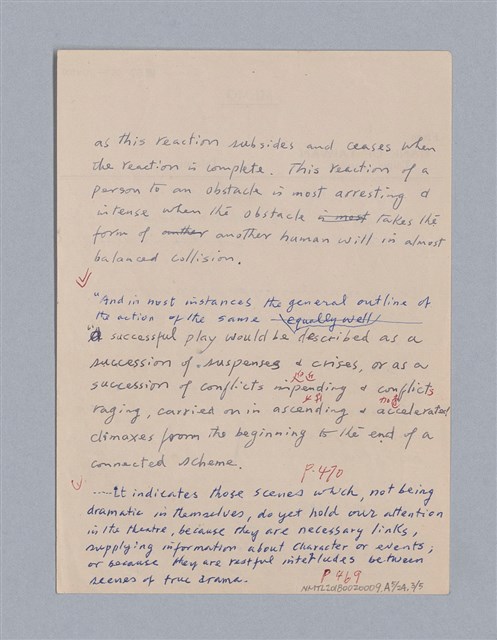 as this reaction subsides and ceases when
the reaction is complete. This reaction of a
person to an obstacle is most arresting &
intense when the obstacle is most takes the
form of another another human will in almost
balanced collision.
"And in most instances the general outline of
the action of the same equally well
"a successful play would be described as a
succession of suspenses & crises, or as a
succession of conflicts impending & conflicts
raging, carried on in ascending & accelerated
climaxes from the beginning to the end of a
connected scheme.
P. 470
......It indicates those scenes which, not being
dramatic in themselves, do yet hold our attention
in the theatre, because they are necessary links,
supplying information about character or events;
or because they are restful interludes between
scenes of true drama.
P 469
NMTL20180020009.A5/2A.3/5